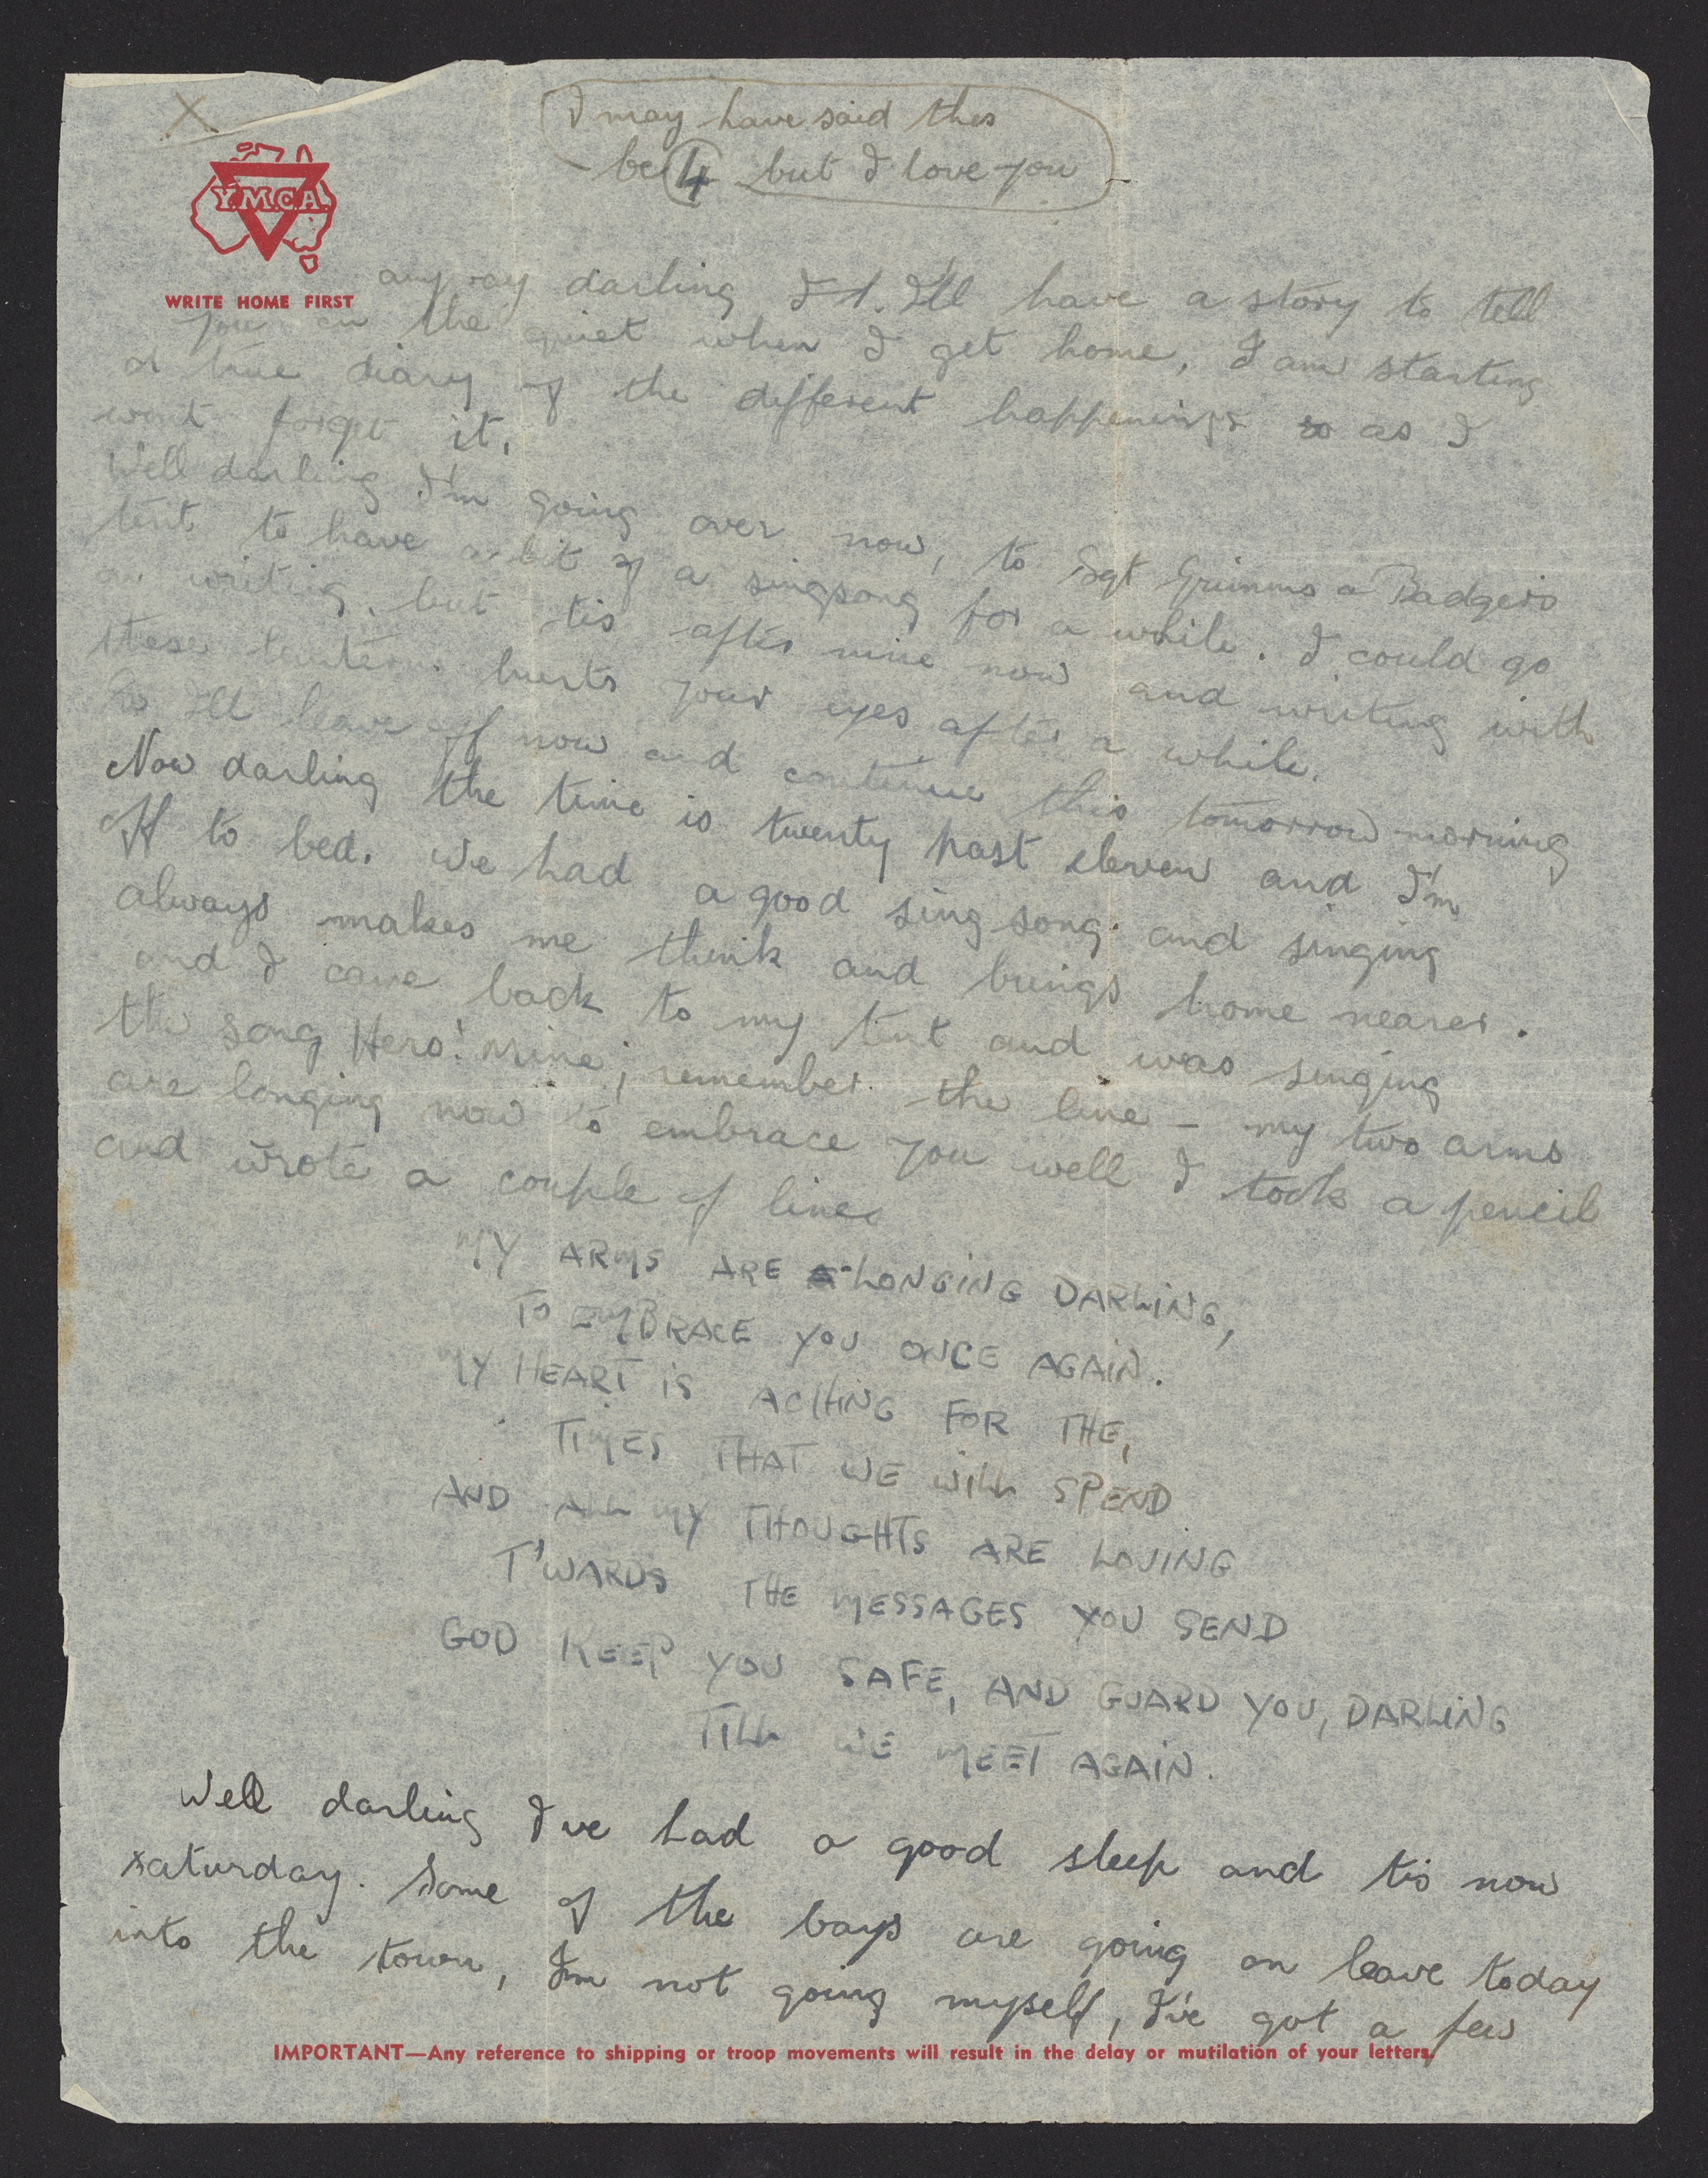 X
I may have said this
be 4 but I love you
Y.M.C.A.
WRITE HOME FIRST
anyway darling I'll have a story to tell
you on the quiet when I get home, I am starting
a true diary of the different happenings so as I
wont forget it.
Well darling I'm going over now, to Sgt Grimms a Badgers
tent to have a bit of a singsong for a while. I could go
on writing, but tis after nine now and writing with
these lanterns hurts your eyes after a while.
So I'll leave off now and continue this tomorrow morning
Now darling the time is twenty past eleven and I'm
off to bed. We had a good sing song and singing
always makes me think and brings home nearer.
and I came back to my tent and was singing
the song Hero! Mine; remember the line - my two arms
are longing now to embrace you well I took a pencil
and wrote a couple of lines
MY ARMS ARE A-LONGING DARLING,
TO EMBRACE YOU ONCE AGAIN.
MY HEART IS ACHING FOR THE,
TIMES THAT WE WILL SPEND
AND ALL MY THOUGHTS ARE LOVING
T'WARDS THE MESSAGES YOU SEND
GOD KEEP YOU SAFE, AND GUARD YOU, DARLING
TILL WE MEET AGAIN.
Well darling I've had a good sleep and tis now
saturday. Some of the boys are going on leave today
into the town, I'm not going myself, I've got a few
IMPORTANT—Any reference to shipping or troop movements will result in the delay or mutilation of your letters.